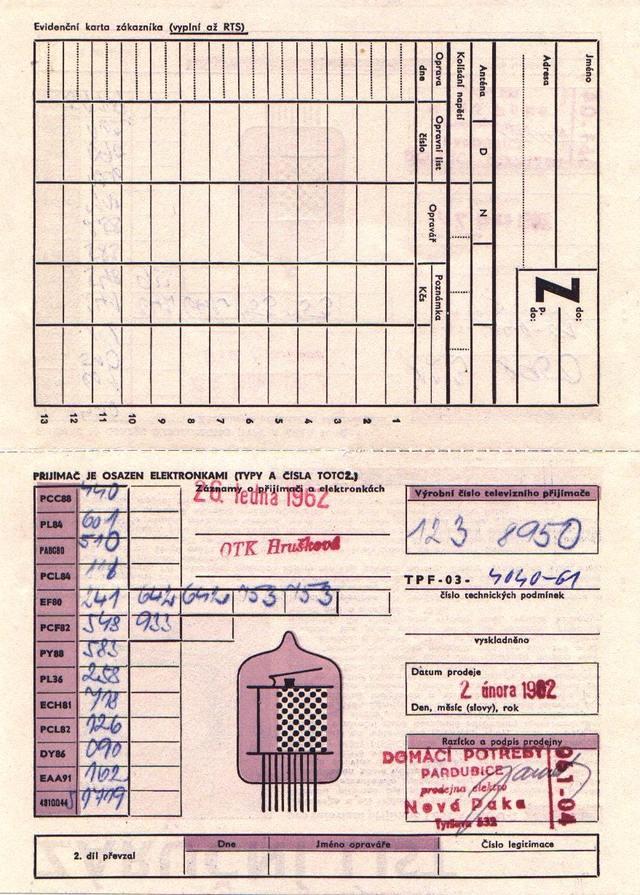 Evidenční karta zákazníka (vyplní až RTS)
Jméno
Adresa
Z
do:
P.
do:
Anténa
D
N
Kolísání napětí
Oprava
dne
Opravní list
číslo
Opravář
Poznámka
Kčs
13 12 11 10 9 8 7 6 5 4 3 2 1
PŘIJÍMAČ JE OSAZEN ELEKTRONKAMI (TYPY A ČÍSLA TOTOŽ.)
Záznamy o přijímači a elektronkách
26. ledna 1962
OTK Hrušková
PCC88 440
PL84 601
PABC80 510
PCL84 118
EF80 241 642 642 753 753
PCF82 548 933
PY88 583
PL36 258
ECH81 718
PCL82 126
DY86 090
EAA91 162
Výrobní číslo televizního přijímače
123 8950
TPF-03- 4040-61
číslo technických podmínek
vyskladněno
Datum prodeje
2 února 1962
Den, měsíc (slovy), rok
Razítko a podpis prodejny
DOMÁCÍ POTŘEBY
PARDUBICE
prodejna elektro
Nová Paka
Tyršova 532
051-04
2. díl převzal
Dne
Jméno opraváře
Číslo legitimace